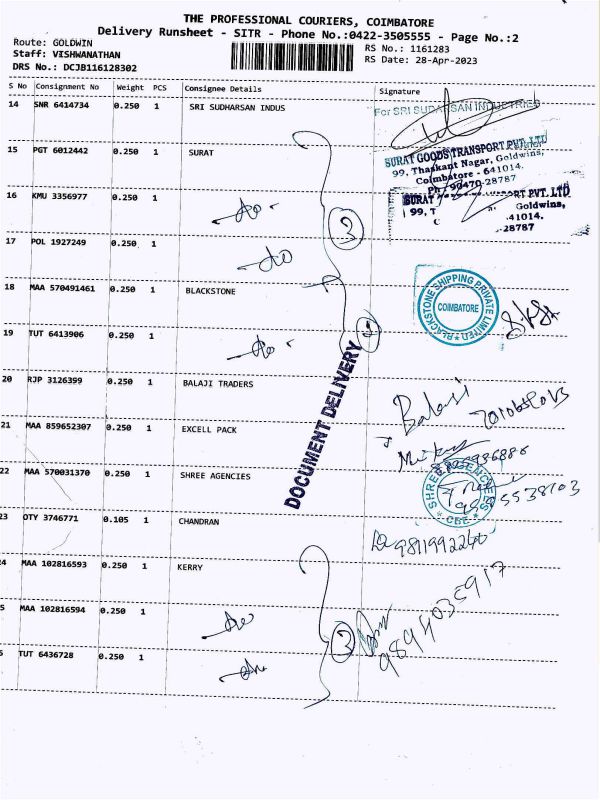 THE PROFESSIONAL COURIERS, COIMBATORE
Delivery Runsheet - SITR - Phone No.:0422-3505555 - Page No.:2
Route: GOLDWIN
RS No.: 1161283
Staff: VISHWANATHAN
RS Date: 28-Apr-2023
DRS No.: DCJB116128302
S No Consignment No Weight PCS Consignee Details Signature
14 SNR 6414734 0.250 1 SRI SUDHARSAN INDUS
For SRI SUDARSAN INDUSTRIES
15 PGT 6012442 0.250 1 SURAT
SURAT GOODS TRANSPORT PVT. LTD
99, Thankant Nagar, Goldwins,
Coimbatore - 641014.
Ph: 90470-28787
16 KMU 3356977 0.250 1
SURAT PORT PVT. LTD
99, T Goldwins,
41014.
-28787
3
17 POL 1927249 0.250 1
18 MAA 570491461 0.250 1 BLACKSTONE
BLACKSTONE SHIPPING PRIVATE LIMITED
COIMBATORE
19 TUT 6413906 0.250 1
DOCUMENT DELIVERY
20 RJP 3126399 0.250 1 BALAJI TRADERS
Balaji
21 MAA 859652307 0.250 1 EXCELL PACK
22 MAA 570031370 0.250 1 SHREE AGENCIES
SHREE AGENCIES
CBE
23 OTY 3746771 0.105 1 CHANDRAN
24 MAA 102816593 0.250 1 KERRY
5 MAA 102816594 0.250 1
3
TUT 6436728 0.250 1